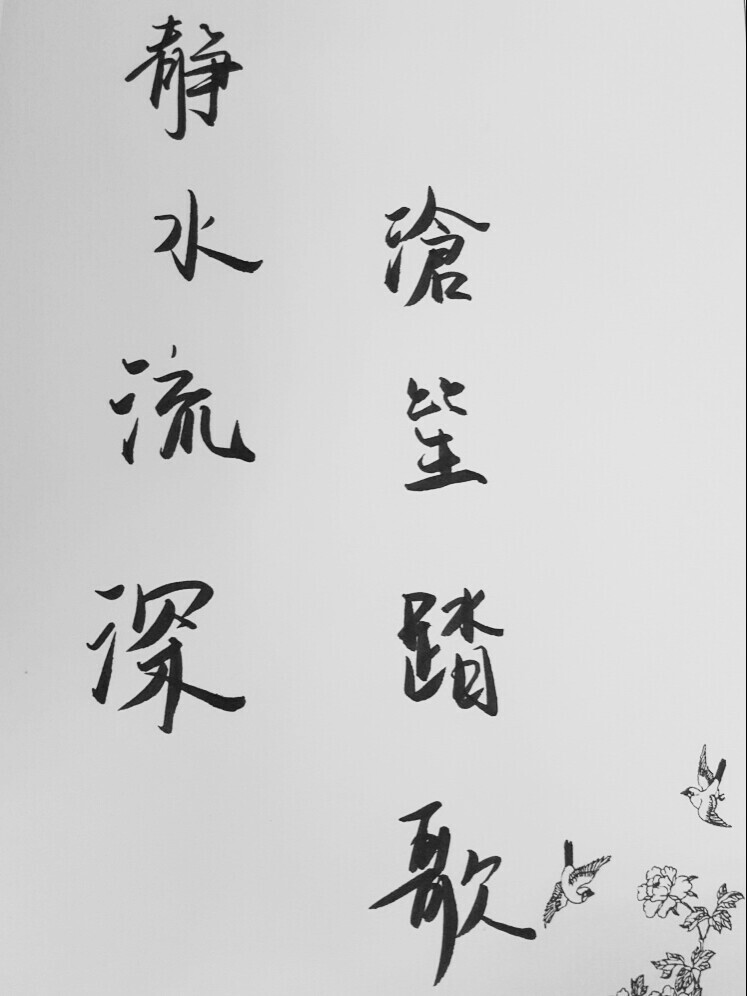 静水流深
滄笙踏歌